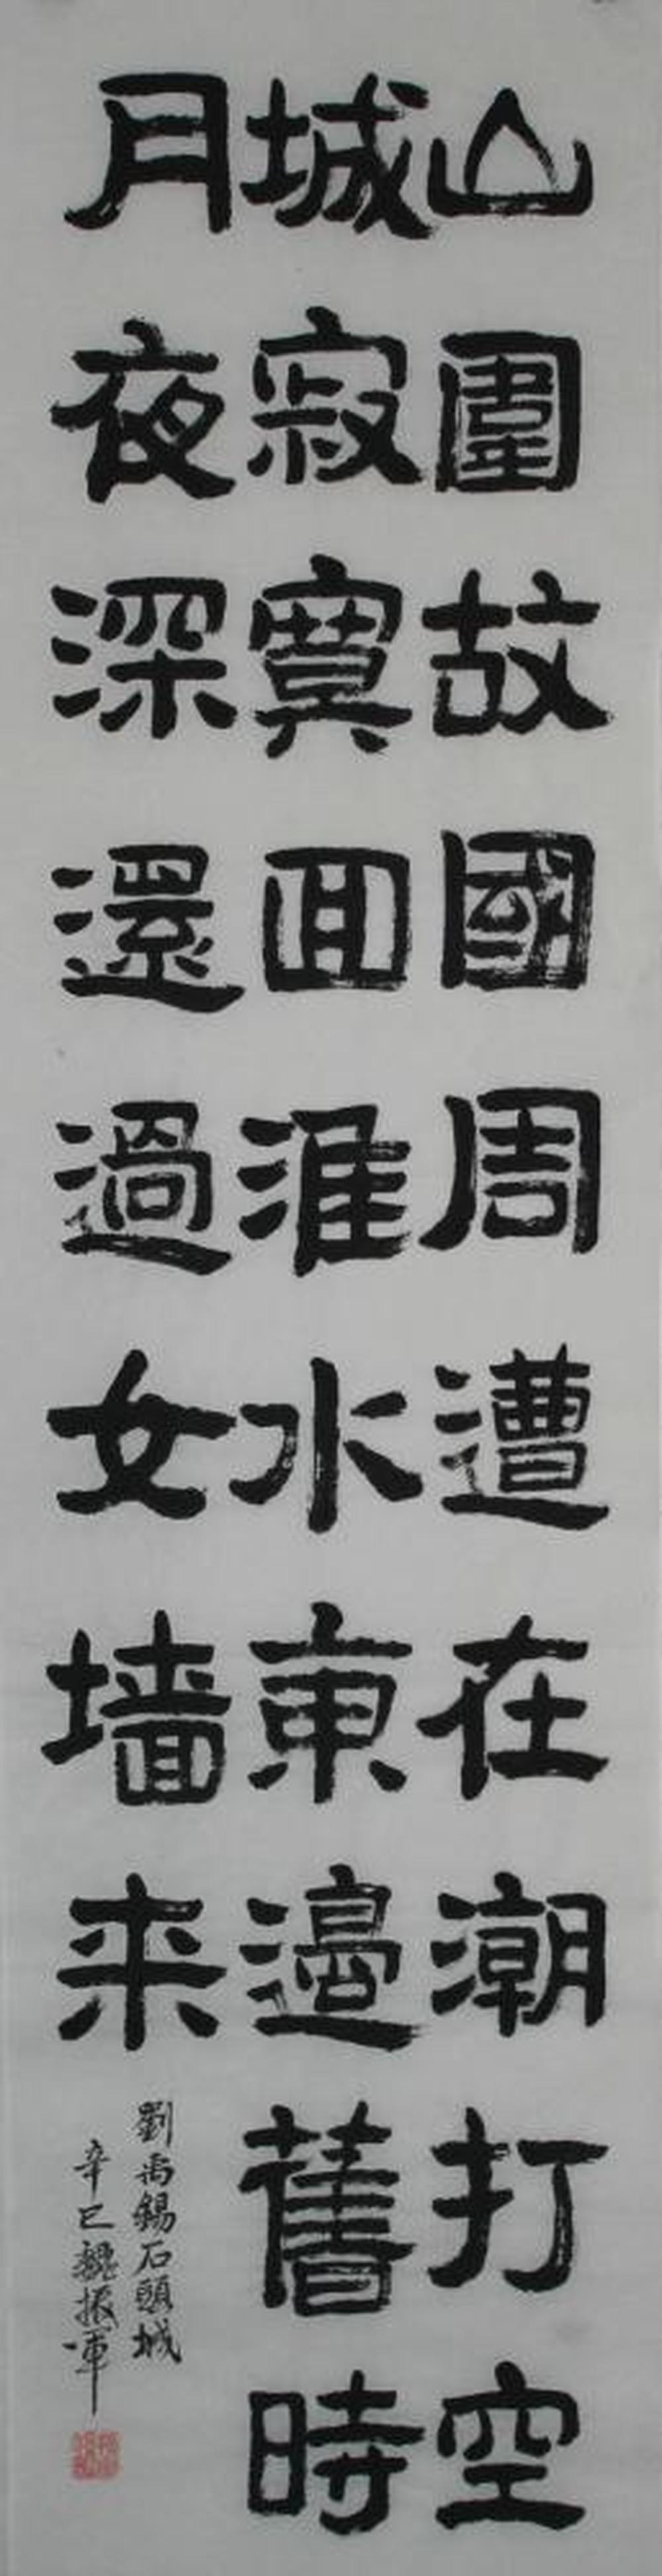 山圍故國周遭在潮打空
城寂寞回淮水東邊舊時
月夜深還過女墙来
劉禹錫石頭城
辛巳魏振軍